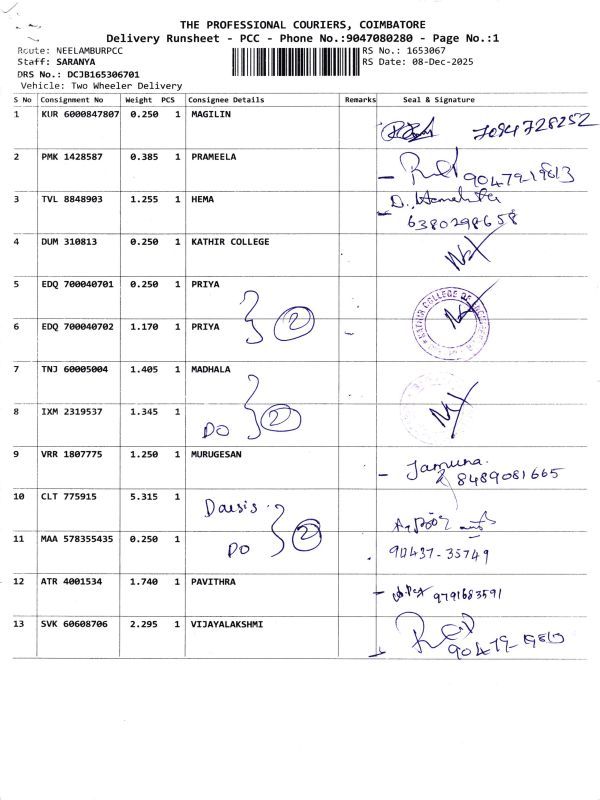 THE PROFESSIONAL COURIERS, COIMBATORE
Delivery Runsheet - PCC - Phone No.:9047080280 - Page No.:1
Route: NEELAMBURPCC RS No.: 1653067
Staff: SARANYA RS Date: 08-Dec-2025
DRS No.: DCJB165306701
Vehicle: Two Wheeler Delivery
S No Consignment No Weight PCS Consignee Details Remarks Seal & Signature
1 KUR 6000847807 0.250 1 MAGILIN 7094728252
2 PMK 1428587 0.385 1 PRAMEELA
90479-19813
3 TVL 8848903 1.255 1 HEMA D.
6380298658
4 DUM 310813 0.250 1 KATHIR COLLEGE
5 EDQ 700040701 0.250 1 PRIYA
2 KATHIR COLLEGE OF
6 EDQ 700040702 1.170 1 PRIYA
7 TNJ 60005004 1.405 1 MADHALA
2
8 IXM 2319537 1.345 1 DO
9 VRR 1807775 1.250 1 MURUGESAN Jamuna.
8489081665
10 CLT 775915 5.315 1 Daisis
2
11 MAA 578355435 0.250 1 DO 90437-35749
12 ATR 4001534 1.740 1 PAVITHRA 9791683591
13 SVK 60608706 2.295 1 VIJAYALAKSHMI